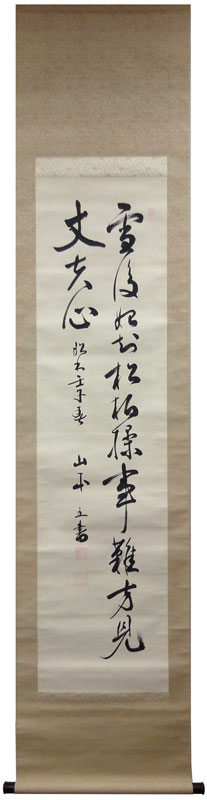 雪後始知松柏操事難方見
丈夫心 昭和壬子春 山 書